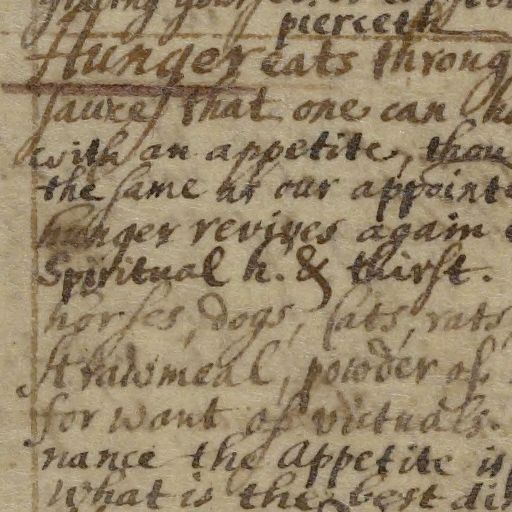 pierceth
Hunger eats throug
sauces that one can ha
with an appetite, thou
the same as our appoint
hunger revives again
Spiritual h. & thirst.
horses, dogs, cats, rats
Strawmeal, powder of
for want of victuals.
nance the appetite is
What is the best di